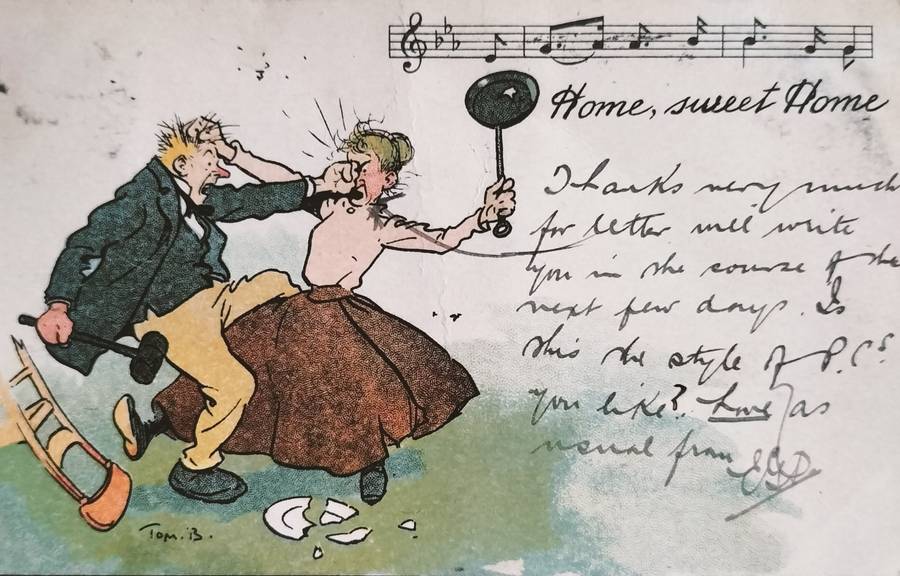 Home, sweet Home
Thanks very much
for letter will write
you in the course of the
next few days. Is
this the style of P.Cs.
you like? Love as
usual from
Tom. B.